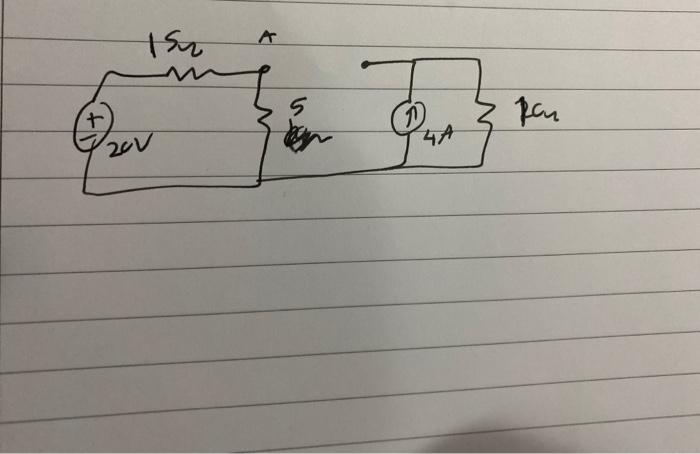 15Ω A
+
20V
5
↑
4A